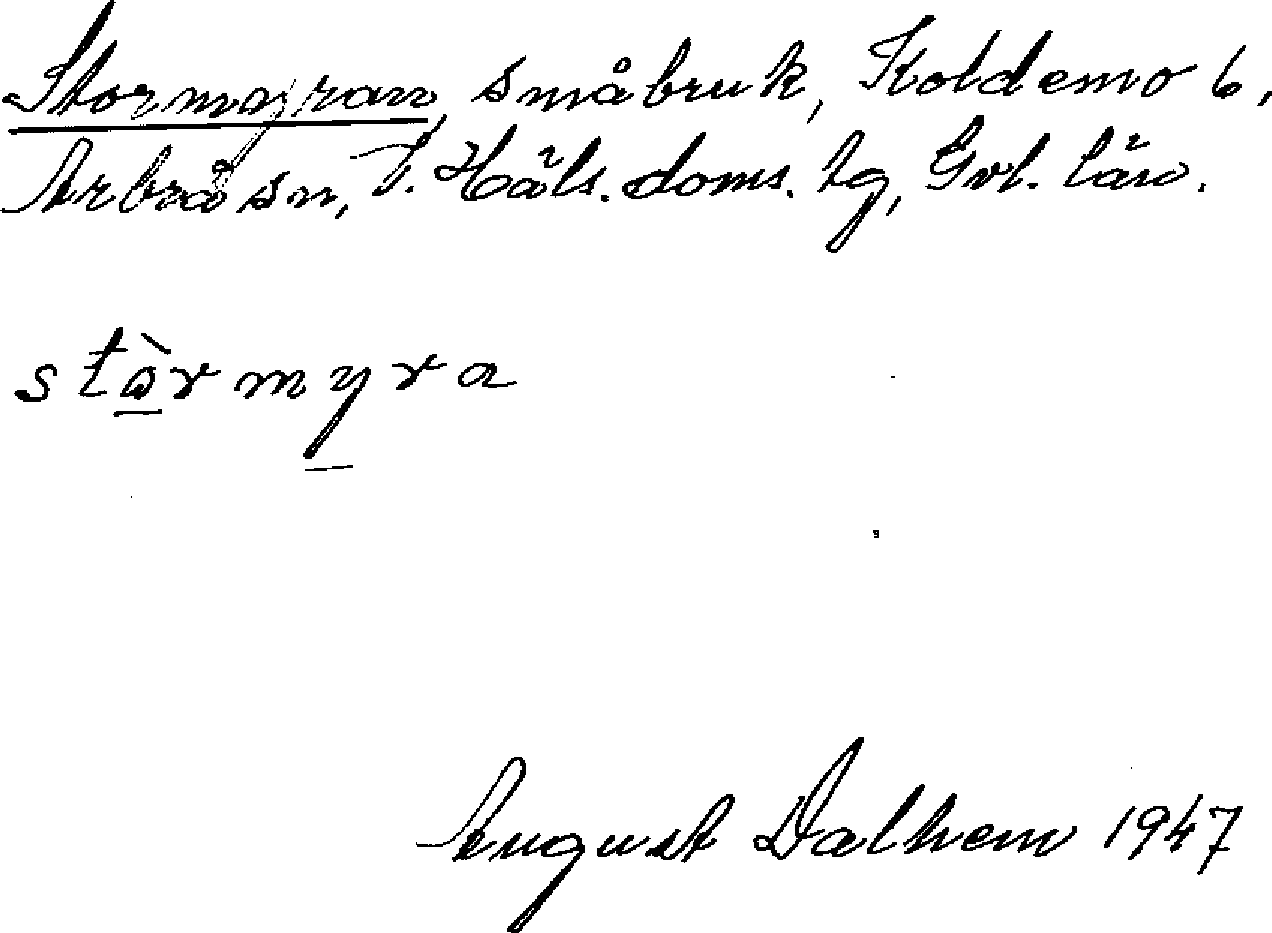 Stormyran, småbruk, Koldemo 6,
Arbrå sn, V. Häls. doms. tg, Gvl. län.
stòrmyra
August Dalhem 1947